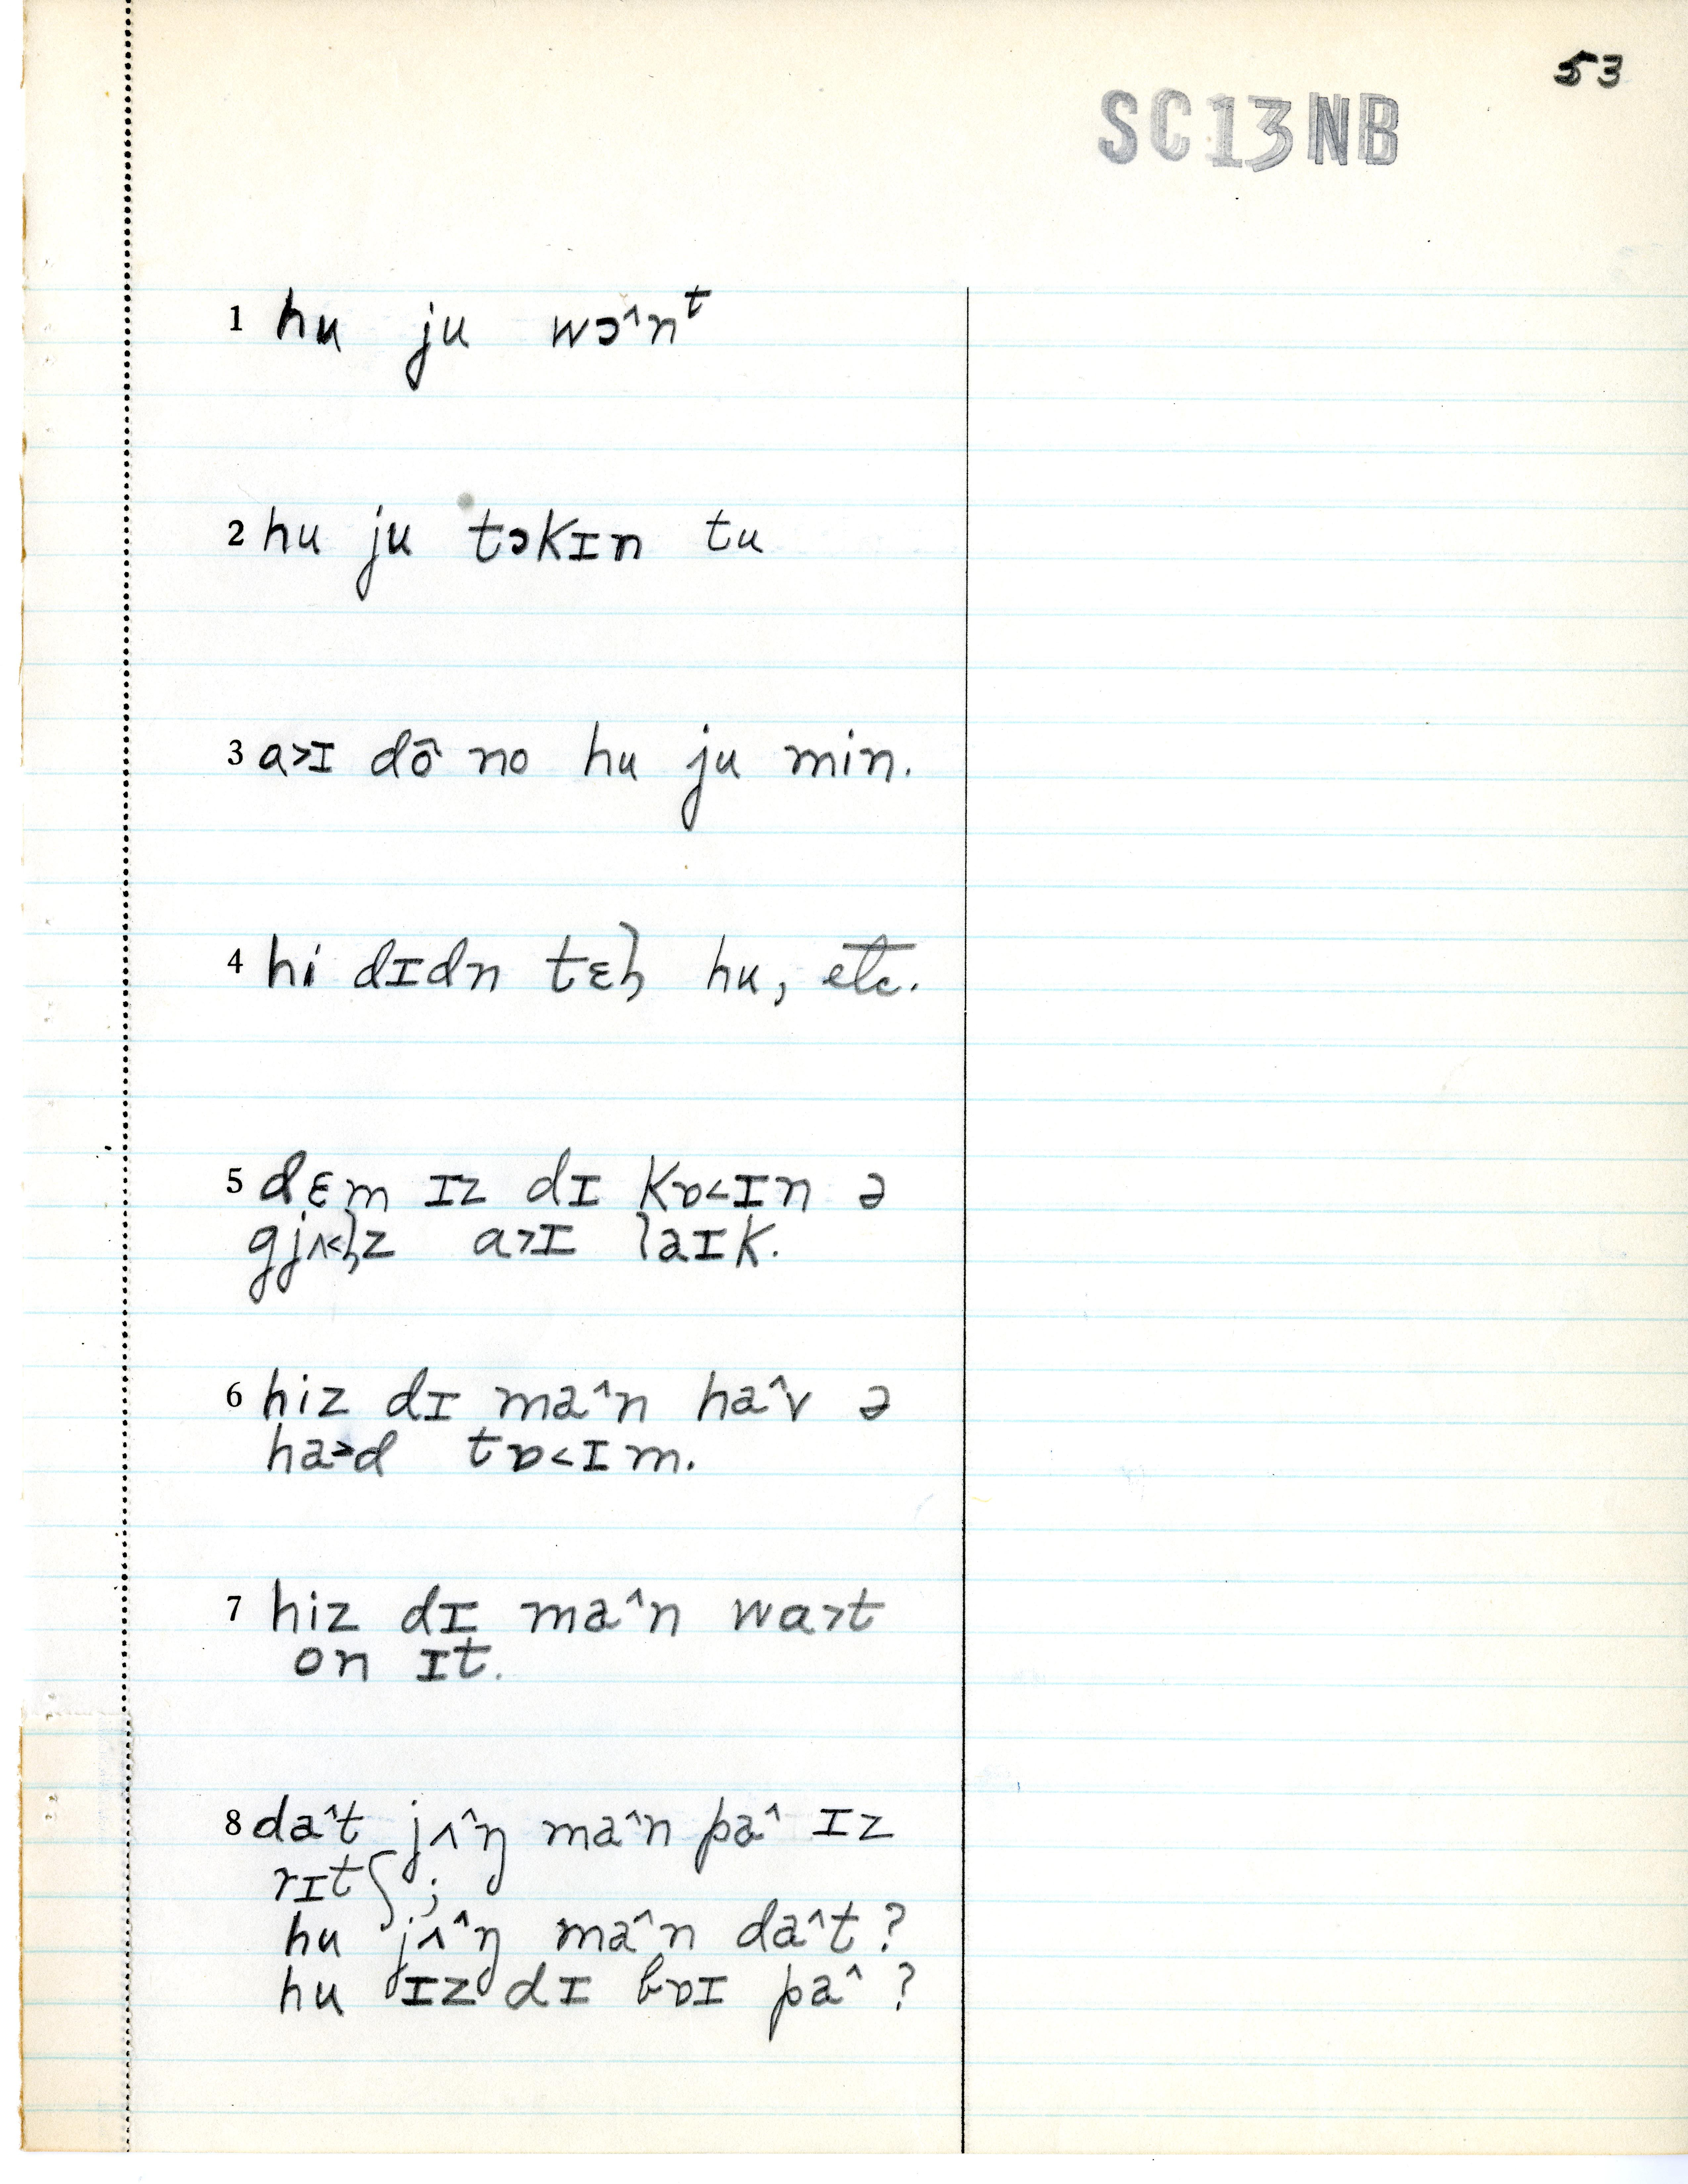 53
SC13NB
1 hu ju wɔ˄nᵗ
2 hu ju tɔkɪn tu
3 a˃ɪ dõ no hu ju min.
4 hi dɪdn tɛl̥ hu, etc.
5 dɛm ɪz dɪ kɒ˂ɪn ə
gjʌ˂l̥z a˃ɪ laɪk.
6 hiz dɪ ma˄n ha˄v ə
ha˃d tɒ˂ɪm.
7 hiz dɪ ma˄n wa˃t
on ɪt.
8 da˄t jʌ˄ŋ ma˄n pa˄ ɪz
rɪtʃ;
hu jʌ˄ŋ ma˄n da˄t?
hu ɪz dɪ bɒɪ pa˄?